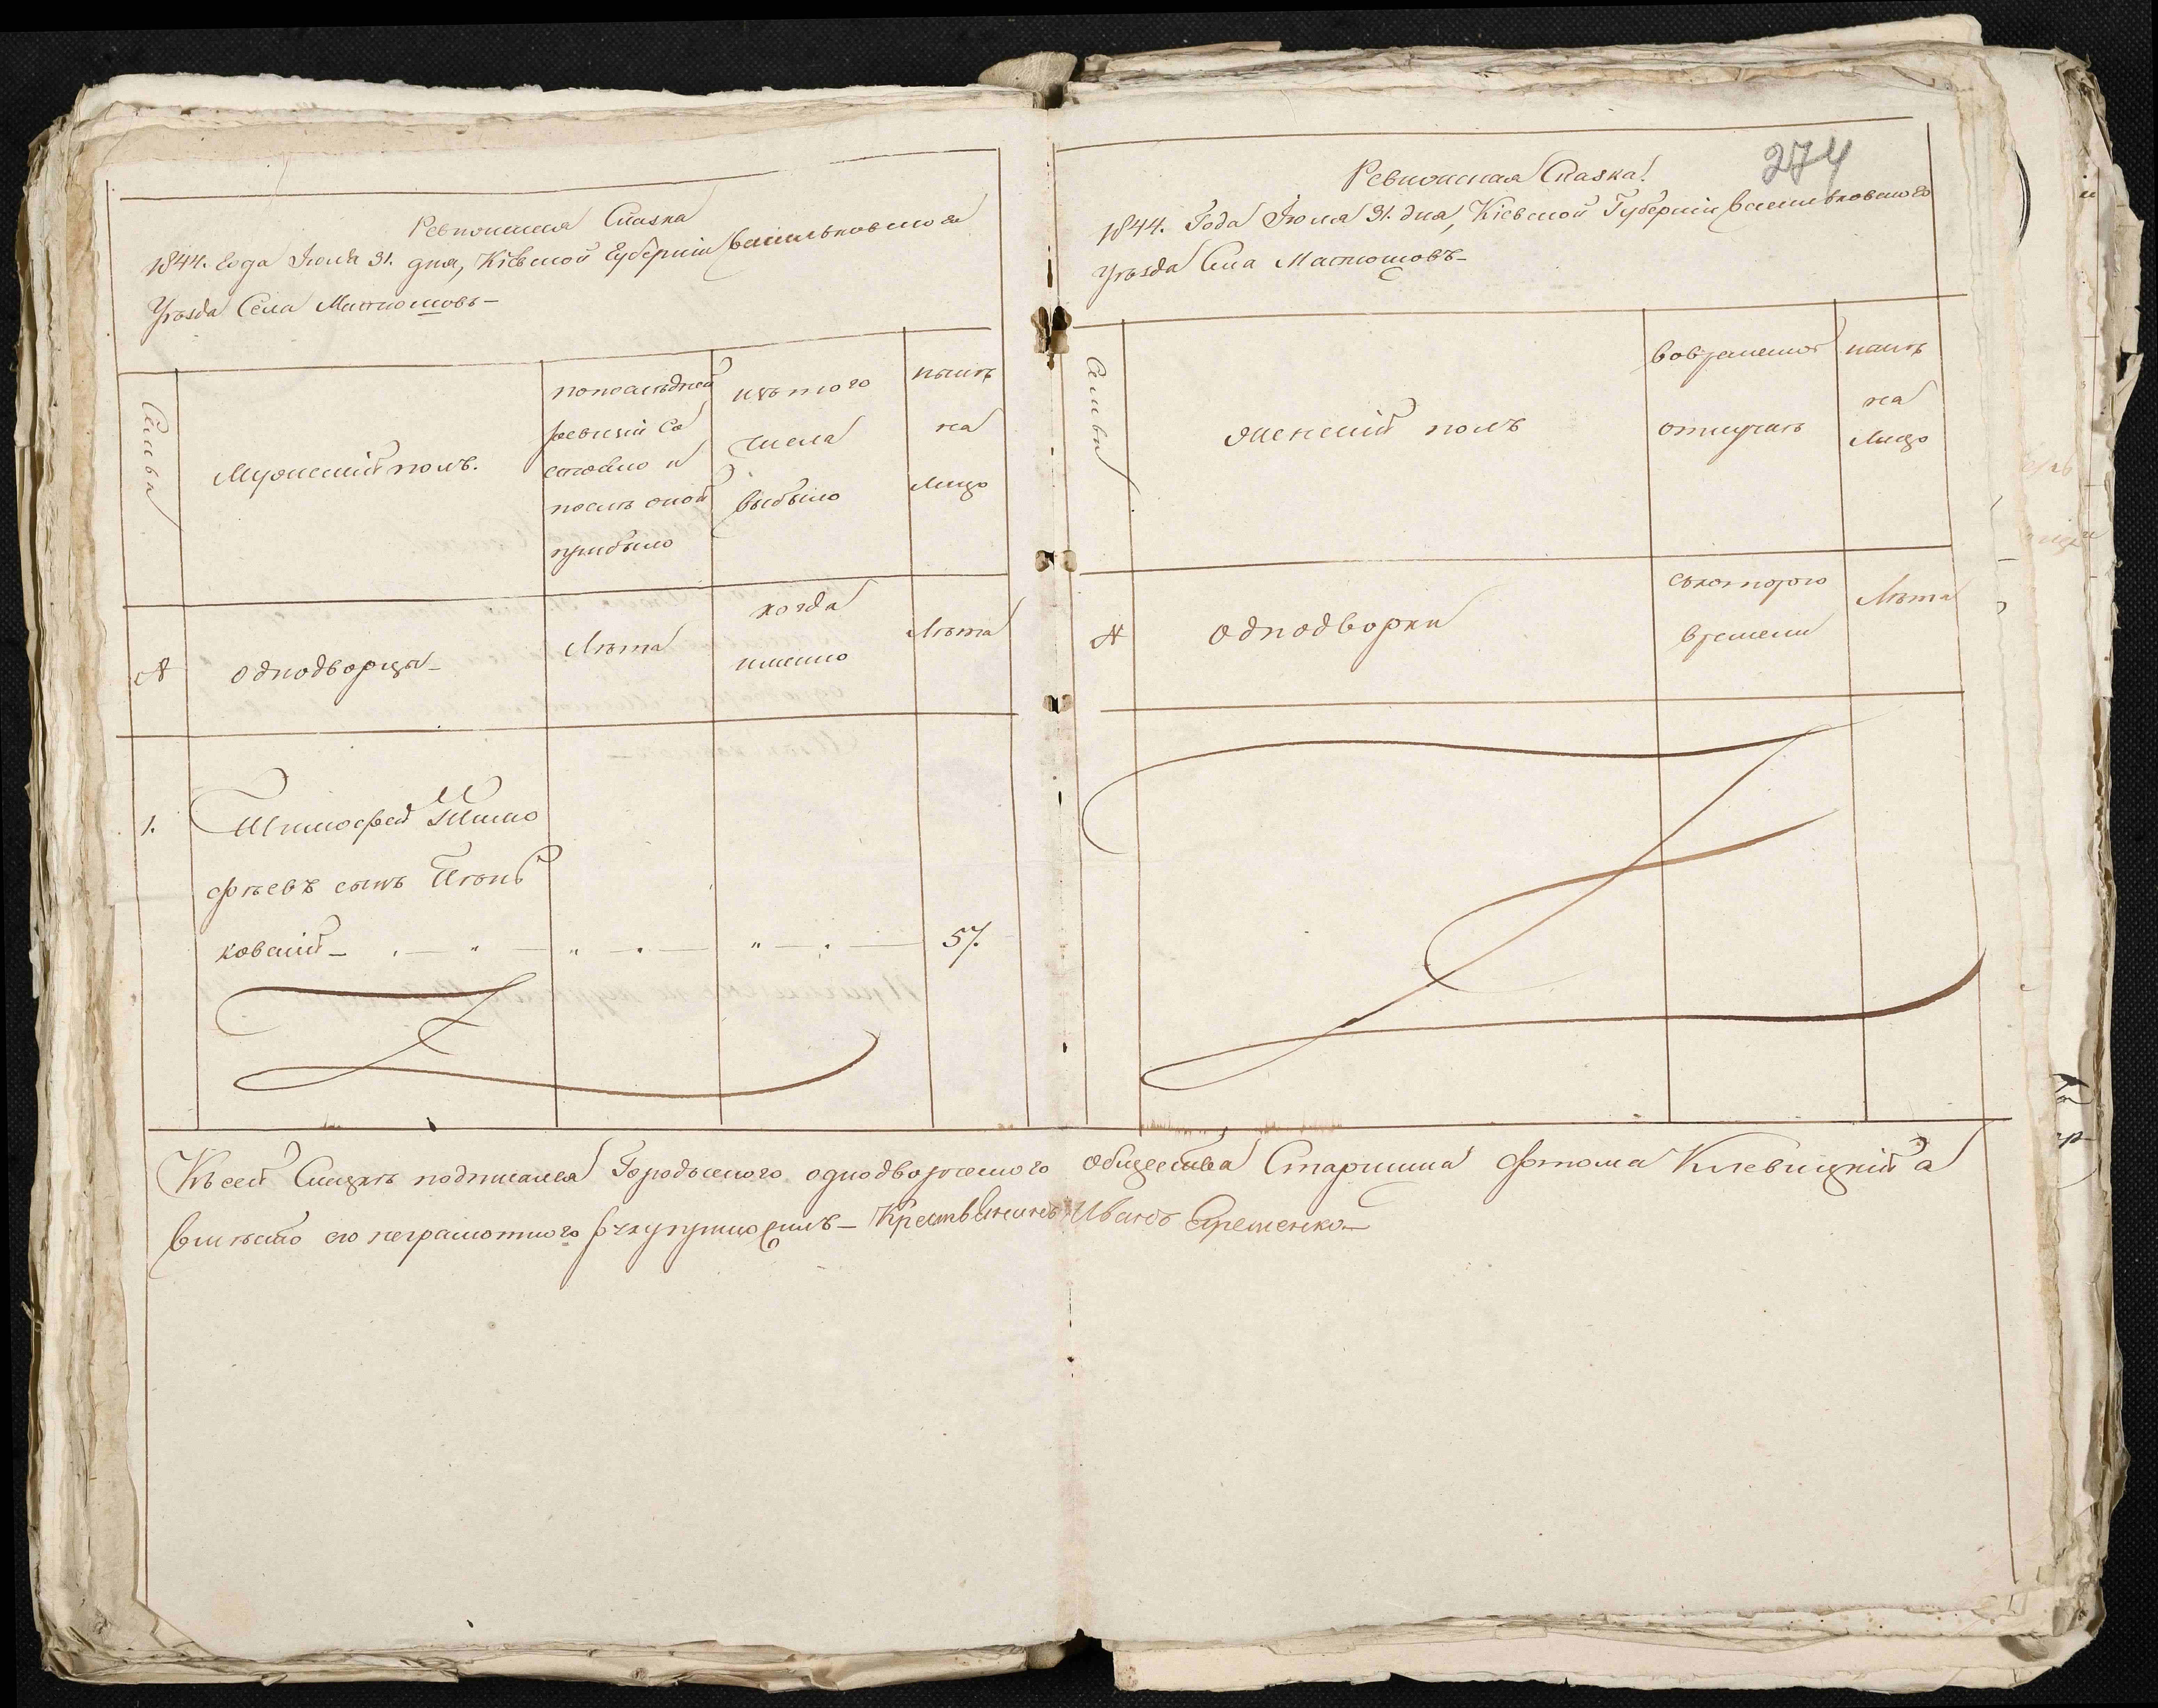 Ревизская Сказка
1844. года Июля 31. дня, Кіевской Губерніи Васильковского
Уѣзда Села Матюшовъ—
Семьи
Мужеский полъ.
попослѣдней
ревизіи Со
стояло и
послѣ оной
прибыло
изъ того
числа
выбыло
нынѣ
на
Лицо
№
однодворцы—
Лѣта
когда
имянно
Лѣта
1.
Тимофей Тимо
фѣевъ сынъ
ковский— 57.
274
Ревизская Сказка
1844. Года Июля 31. дня, Кіевской Губерніи Васильковского
Уѣзда Села Матюшовъ—
Семьи
Женский полъ
вовременной
отлучкѣ
нынѣ
на
Лицо
№
Однодворки
скоторого
времени
Лѣта
Къ сей Сказкѣ подписался Городского однодворческого общества Старшина Фтома Клевицкий а
вмѣсто его неграмотного руку приложилъ— Крестьянинъ Иванъ Яременко—